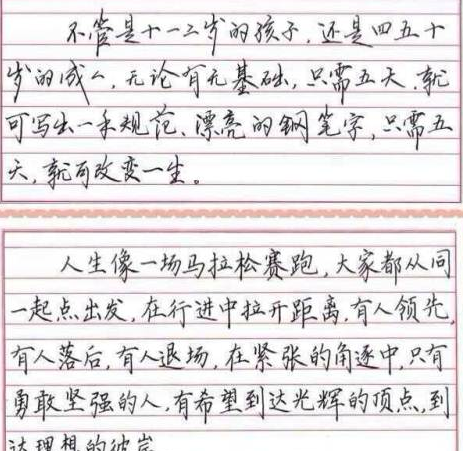 不管是十一二岁的孩子,还是四五十
岁的成人,无论有无基础,只需五天,就
可写出一手规范、漂亮的钢笔字,只需五
天,就可改变一生。
人生像一场马拉松赛跑,大家都从同
一起点出发,在行进中拉开距离,有人领先,
有人落后,有人退场,在紧张的角逐中,只有
勇敢坚强的人,有希望到达光辉的顶点,到
达理想的彼岸